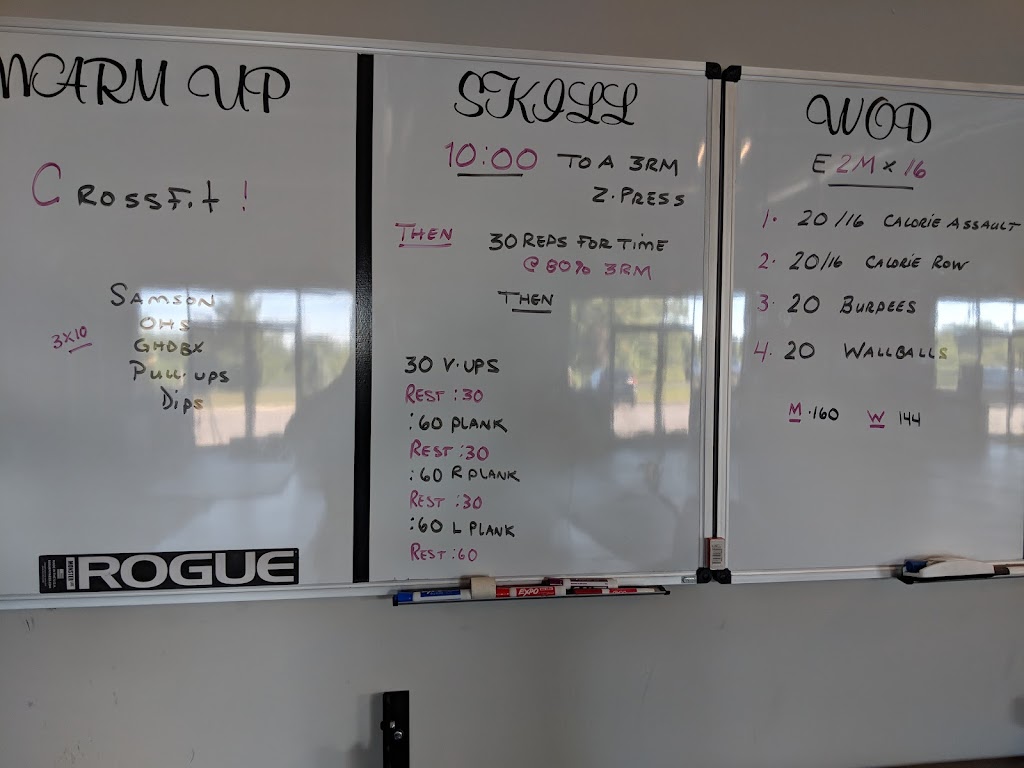 WARM UP
CROSSFit!
SAMSON
OHS
3x10
GHDBX
PULL-UPS
Dips
ROGUE
SKILL
10:00 TO A 3RM
Z-PRESS
THEN 30 REPS FOR TIME
@ 80% 3RM
THEN
30 V-UPS
REST :30
:60 PLANK
REST :30
:60 R PLANK
REST :30
:60 L PLANK
REST :60
EXPO
WOD
E 2M x 16
1. 20/16 CALORIE ASSAULT
2. 20/16 CALORIE ROW
3. 20 BURPEES
4. 20 WALLBALLS
M-160 W 144